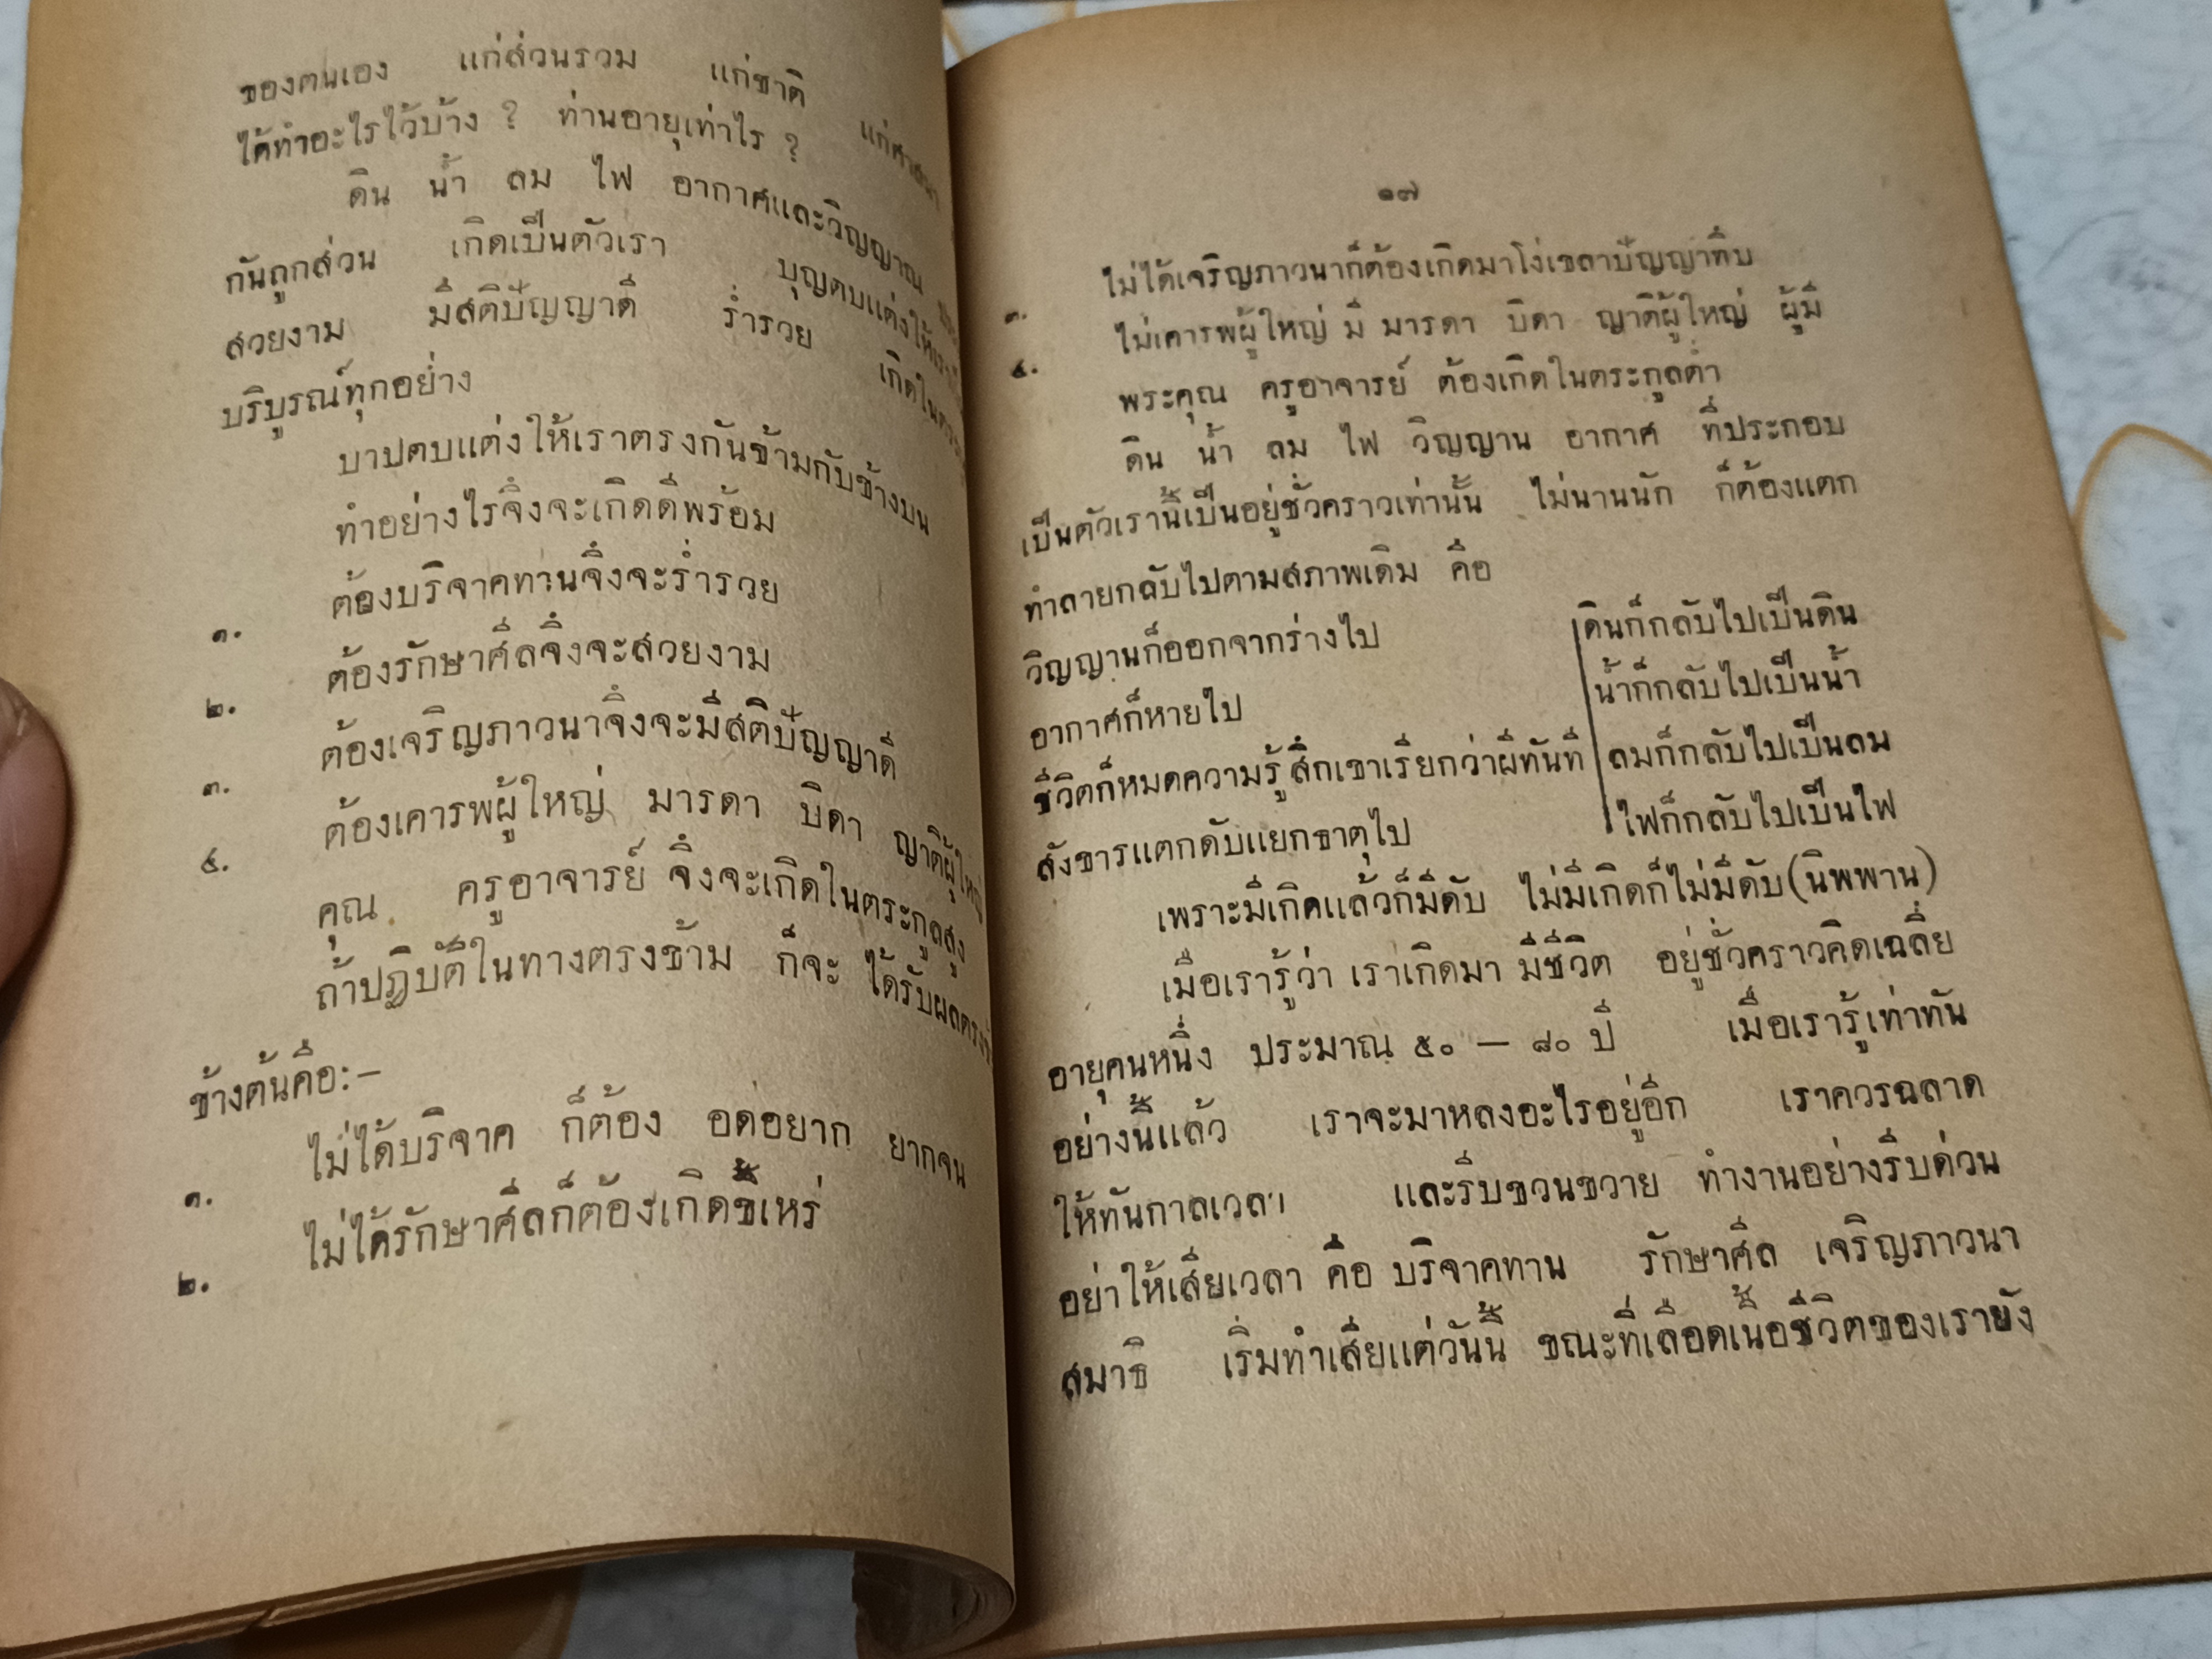 ของตนเอง แก่ส่วนรวม แก่ชาติ แก่ศาสนา
ได้ทำอะไรไว้บ้าง ? ท่านอายุเท่าไร ?
ดิน น้ำ ลม ไฟ อากาศและวิญญาณ
กันถูกส่วน เกิดเป็นตัวเรา บุญตบแต่งให้เรา
สวยงาม มีสติปัญญาดี ร่ำรวย เกิดใน
บริบูรณ์ทุกอย่าง
บาปตบแต่งให้เราตรงกันข้ามกับข้างบน
ทำอย่างไรจึงจะเกิดดีพร้อม
๑. ต้องบริจาคทานจึงจะร่ำรวย
๒. ต้องรักษาศีลจึงจะสวยงาม
๓. ต้องเจริญภาวนาจึงจะมีสติปัญญาดี
๔. ต้องเคารพผู้ใหญ่ มารดา บิดา ญาติผู้ใหญ่
คุณ ครูอาจารย์ จึงจะเกิดในตระกูลสูง
ถ้าปฏิบัติในทางตรงข้าม ก็จะ ได้รับผลตรง
ข้างต้นคือ:–
๑. ไม่ได้บริจาค ก็ต้อง อดอยาก ยากจน
๒. ไม่ได้รักษาศีลก็ต้องเกิดขี้เหร่
๑๗
๓. ไม่ได้เจริญภาวนาก็ต้องเกิดมาโง่เขลาปัญญาทึบ
๔. ไม่เคารพผู้ใหญ่ มี มารดา บิดา ญาติผู้ใหญ่ ผู้มี
พระคุณ ครูอาจารย์ ต้องเกิดในตระกูลต่ำ
ดิน น้ำ ลม ไฟ วิญญาน อากาศ ที่ประกอบ
เป็นตัวเรานี้เป็นอยู่ชั่วคราวเท่านั้น ไม่นานนัก ก็ต้องแตก
ทำลายกลับไปตามสภาพเดิม คือ
วิญญานก็ออกจากร่างไป ดินก็กลับไปเป็นดิน
อากาศก็หายไป น้ำก็กลับไปเป็นน้ำ
ชีวิตก็หมดความรู้สึกเขาเรียกว่าผีทันที ลมก็กลับไปเป็นลม
สังขารแตกดับแยกธาตุไป ไฟก็กลับไปเป็นไฟ
เพราะมีเกิดแล้วก็มีดับ ไม่มีเกิดก็ไม่มีดับ(นิพพาน)
เมื่อเรารู้ว่า เราเกิดมา มีชีวิต อยู่ชั่วคราวคิดเฉลี่ย
อายุคนหนึ่ง ประมาณ ๕๐ — ๘๐ ปี เมื่อเรารู้เท่าทัน
อย่างนี้แล้ว เราจะมาหลงอะไรอยู่อีก เราควรฉลาด
ให้ทันกาลเวลา และรีบขวนขวาย ทำงานอย่างรีบด่วน
อย่าให้เสียเวลา คือ บริจาคทาน รักษาศีล เจริญภาวนา
สมาธิ เริ่มทำเสียแต่วันนี้ ขณะที่เลือดเนื้อชีวิตของเรายัง